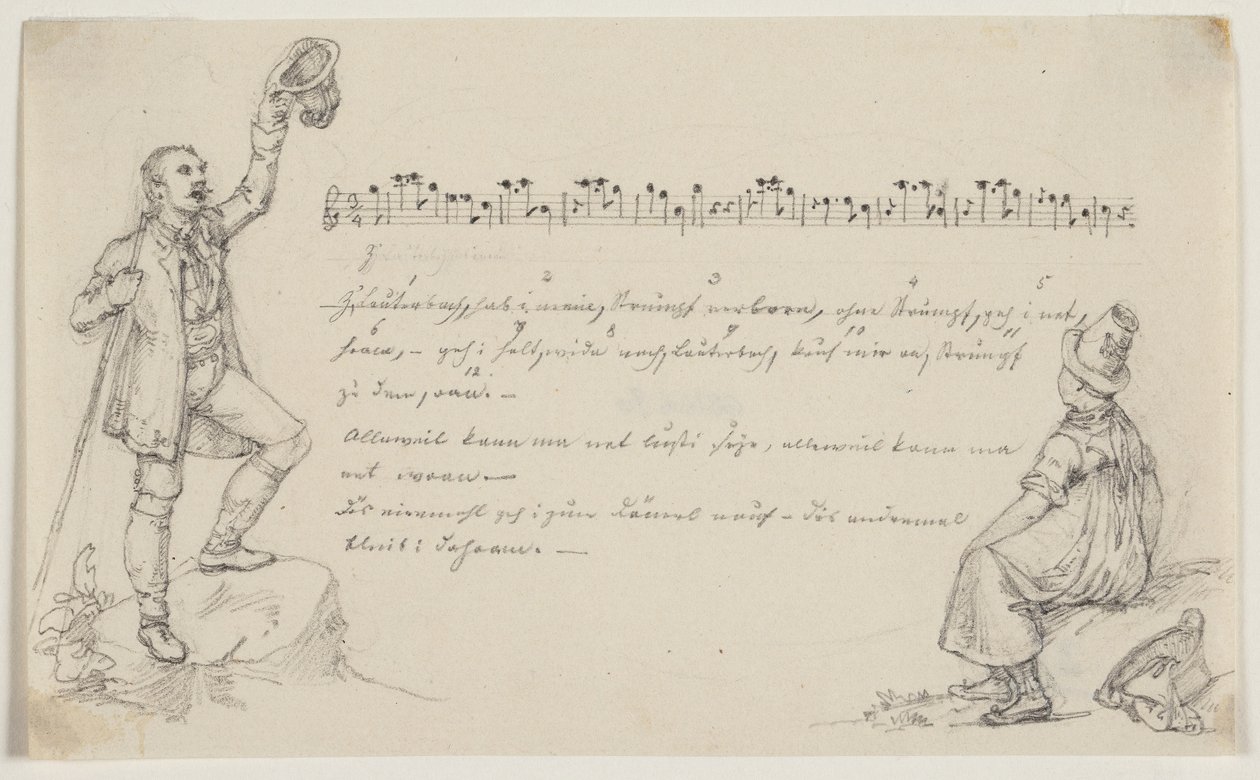 3
4
1 2 3 4 5
Z'Lauterbach, hab i mein, Strumpf verlorn, ohne Strumpf, geh i net,
6 7 8 9 10 11
hoam, – geh i halt, wida nach, Lauterbach, kauf mir an, Strumpf
12
zu dem, oan. –
Alleweil kann ma net lusti seyn, alleweil kann ma
net woan. —
Dös einemahl geh i zum nauf – dös andremal
bleib i dahoam. —